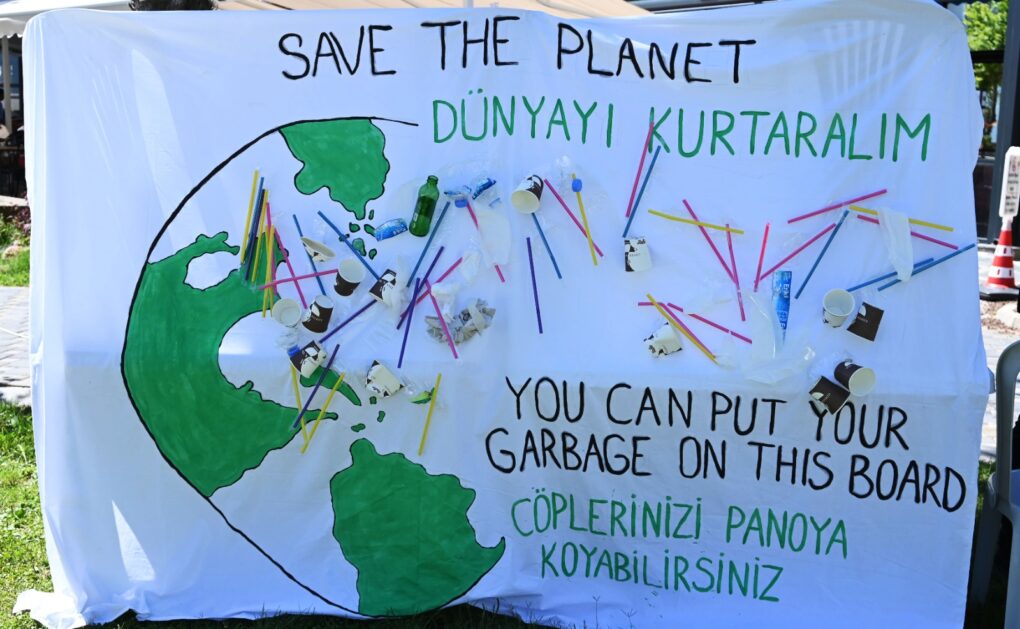 SAVE THE PLANET
DÜNYAYI KURTARALIM
YOU CAN PUT YOUR
GARBAGE ON THIS BOARD
ÇÖPLERİNİZİ PANOYA
KOYABİLİRSİNİZ